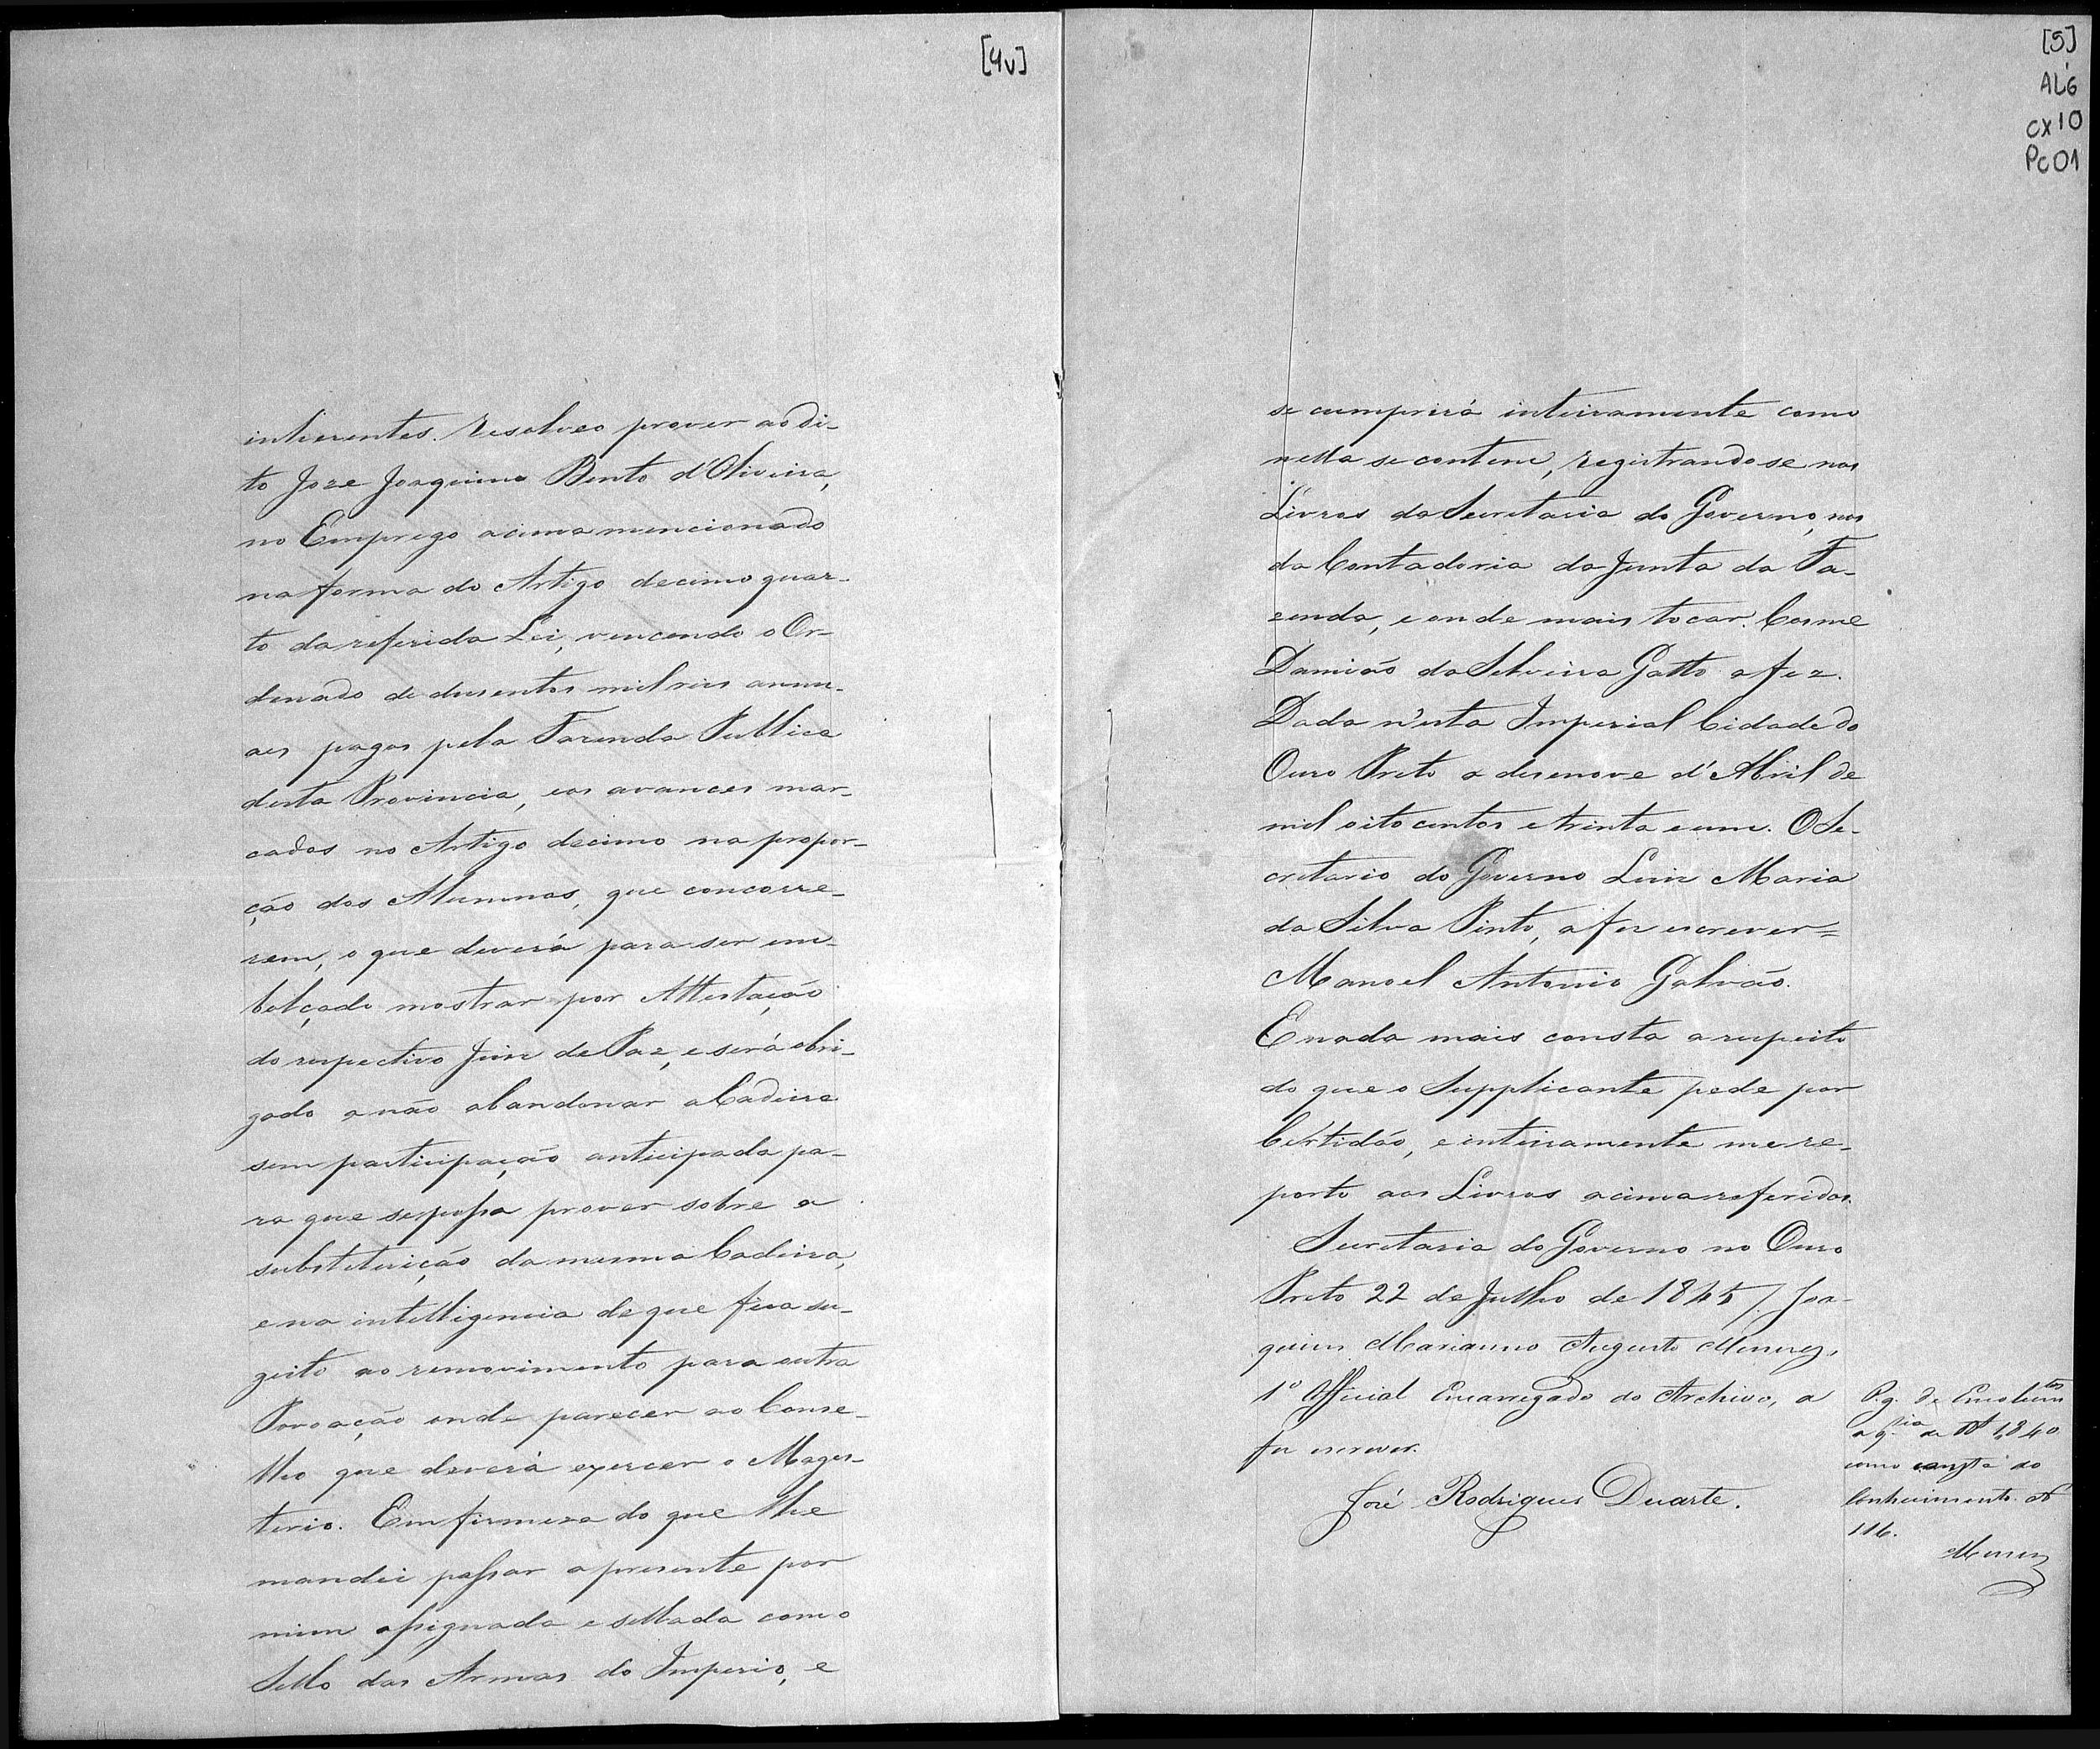 [4v]
inherentes. Resolveo prover ao di-
to Joze Joaquim Bento d'Oliveira,
no Emprego acima mencionado
na forma do Artigo decimo quar-
to da referida Lei, vencendo o Or-
denado de dusentos mil reis annu-
aes pagos pela Fazenda Publica
desta Provincia, eos avances mar-
cados no Artigo decimo na propor-
ção dos Alumnos, que concorre-
rem, o que deverá para ser em-
bolçado mostrar por Attestação
do respectivo Juiz de Paz, e será obri-
gado a não abandonar a Cadeira
sem participação anticipada pa-
ra que se possa prover sobre a
substituição da mesma Cadeira,
e na intelligencia de que fica su-
geito ao removimento para outra
Povoação onde parecer ao Conse-
lho que deverá exercer o Magis-
terio. Em firmeza do que lhe
mandei passar a presente por
mim assignada e sellada como
Sello das Armas do Imperio, e
[5]
AL6
CX10
Pc01
se cumprirá inteiramente como
nella se contem, registrando se nos
Livros da Secretaria do Governo, nos
da Contadoria da Junta da Fa-
zenda, e onde mais tocar. Cosme
Damião da Silveira Gatto a fez.
Dada n'esta Imperial Cidade do
Ouro Preto a desenove d'Abril de
mil oito centos e trinta e um. O Se-
cretario do Governo Luiz Maria
da Silva Pinto, a fez escrever =
Manoel Antonio Galvão.
E nada mais consta a respeito
do que o Supplicante pede por
Certidão, e inteiramente me re-
porto aos Livros acima referidos.
Secretaria do Governo no Ouro
Preto 22 de Julho de 1845/. Joa-
quim Marianno Augusto Menezes,
1º Official Encarregado do Archivo, a
fez escrever.
José Rodrigues Duarte.
Pg. de Emolum.tos
a q.tia de Rs 1,840
como consta do
Conhecimento Nº
116.
Menezes